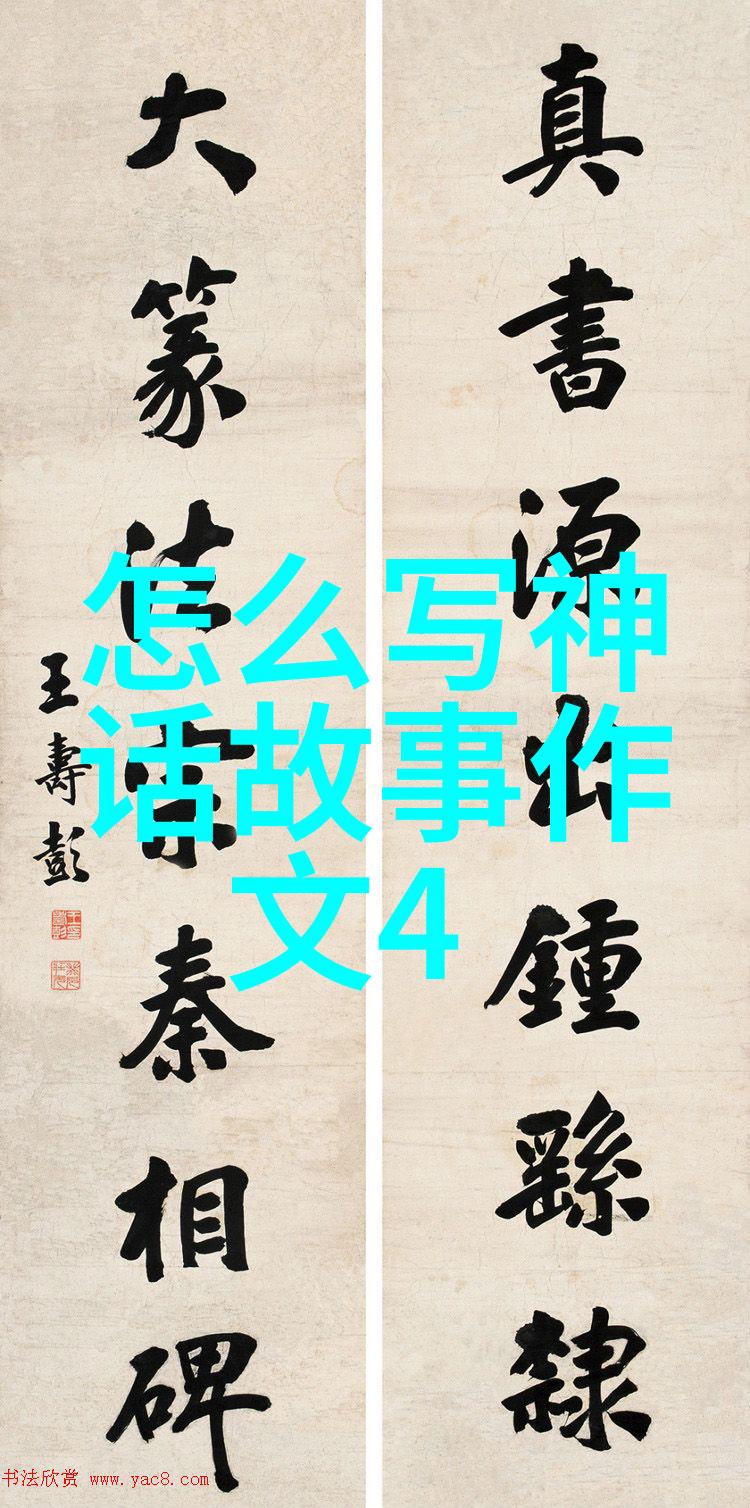 真書源出鍾繇隸
大篆法宗秦相碑
王壽彭
怎么写神
话故事作
文4
书法欣赏 www.yac8.com